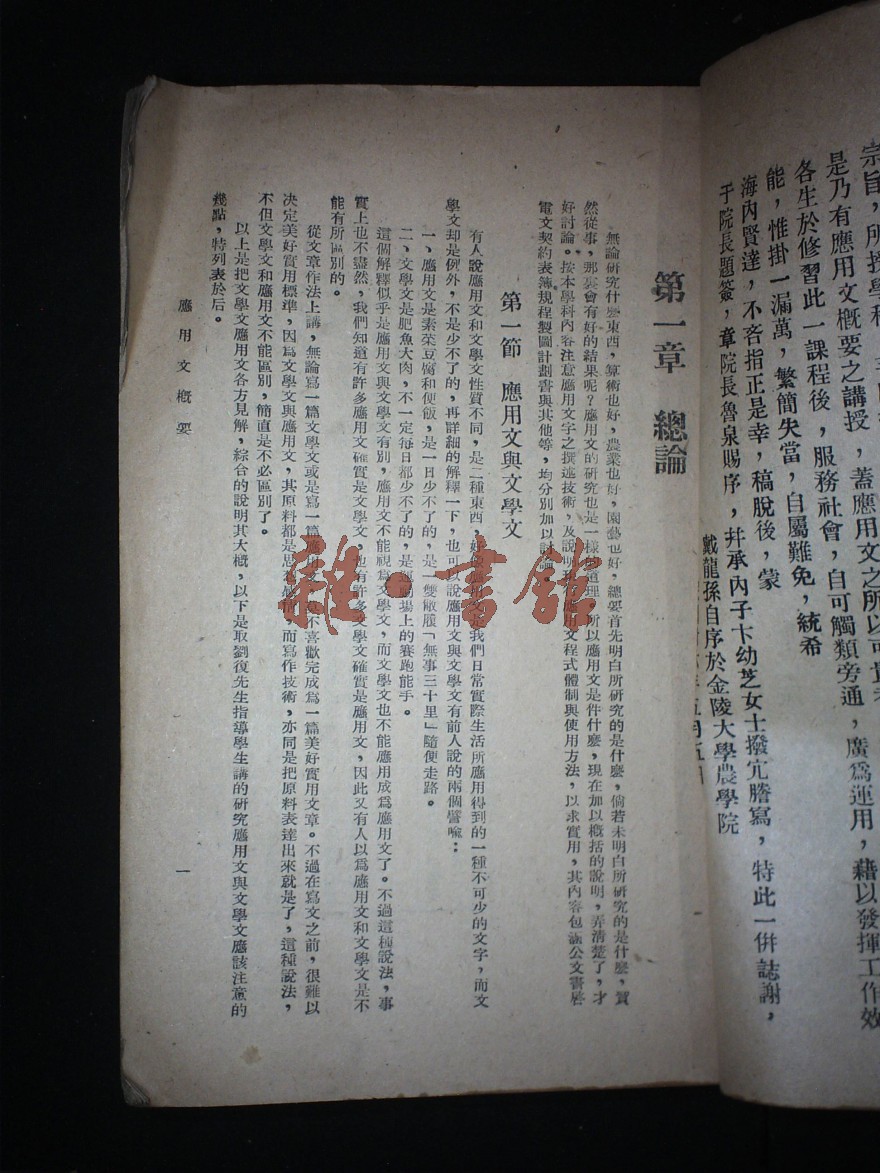 宗旨，所授學科，
是乃有應用文概要之講授，蓋應用文之所以可貴者，
各生於修習此一課程後，服務社會，自可觸類旁通，廣爲運用，藉以發揮工作效
能，惟掛一漏萬，繁簡失當，自屬難免，統希
海內賢達，不吝指正是幸，稿脫後，蒙
于院長題簽，章院長魯泉賜序，幷承內子卞幼芝女士撥冗謄寫，特此一併誌謝，
戴龍孫自序於金陵大學農學院
第一章　總論
無論研究什麼東西，算術也好，農業也好，園藝也好，總要首先明白所研究的是什麼，倘若未明白所研究的是什麼，貿
然從事，那裏會有好的結果呢？應用文的研究也是一樣的道理，所以應用文是件什麼，現在加以概括的說明，弄清楚了，才
好討論。按本學科內容注意應用文字之撰述技術，及說明現行應用文程式體制與使用方法，以求實用，其內容包涵公文書啓
電文契約表簿規程製圖計劃書與其他等，均分別加以討論
第一節　應用文與文學文
有人說應用文和文學文性質不同，是二種東西，好像應用文是我們日常實際生活所應用得到的一種不可少的文字，而文
學文却是例外，不是少不了的，再詳細的解釋一下，也可以說應用文與文學文有前人說的兩個譬喩：
一、應用文是素菜豆腐和便飯，是一日少不了的，是一雙敝履「無事三十里」隨便走路。
二、文學文是肥魚大肉，不一定每日都少不了的，是運動場上的賽跑能手。
這個解釋似乎是應用文與文學文有別，應用文不能視爲文學文，而文學文也不能應用成爲應用文了。不過這種說法，事
實上也不盡然，我們知道有許多應用文確實是文學文，也有許多文學文確實是應用文，因此又有人以爲應用文和文學文是不
能有所區別的。
從文章作法上講，無論寫一篇文學文或是寫一篇應用文，莫不喜歡完成爲一篇美好實用文章。不過在寫文之前，很難以
決定美好實用標準，因爲文學文與應用文，其原料都是思想感情，而寫作技術，亦同是把原料表達出來就是了，這種說法，
不但文學文和應用文不能區別，簡直是不必區別了。
以上是把文學文應用文各方見解，綜合的說明其大概，以下是取劉復先生指導學生講的研究應用文與文學文應該注意的
幾點，特列表於后。
應用文概要
一
雜·書館